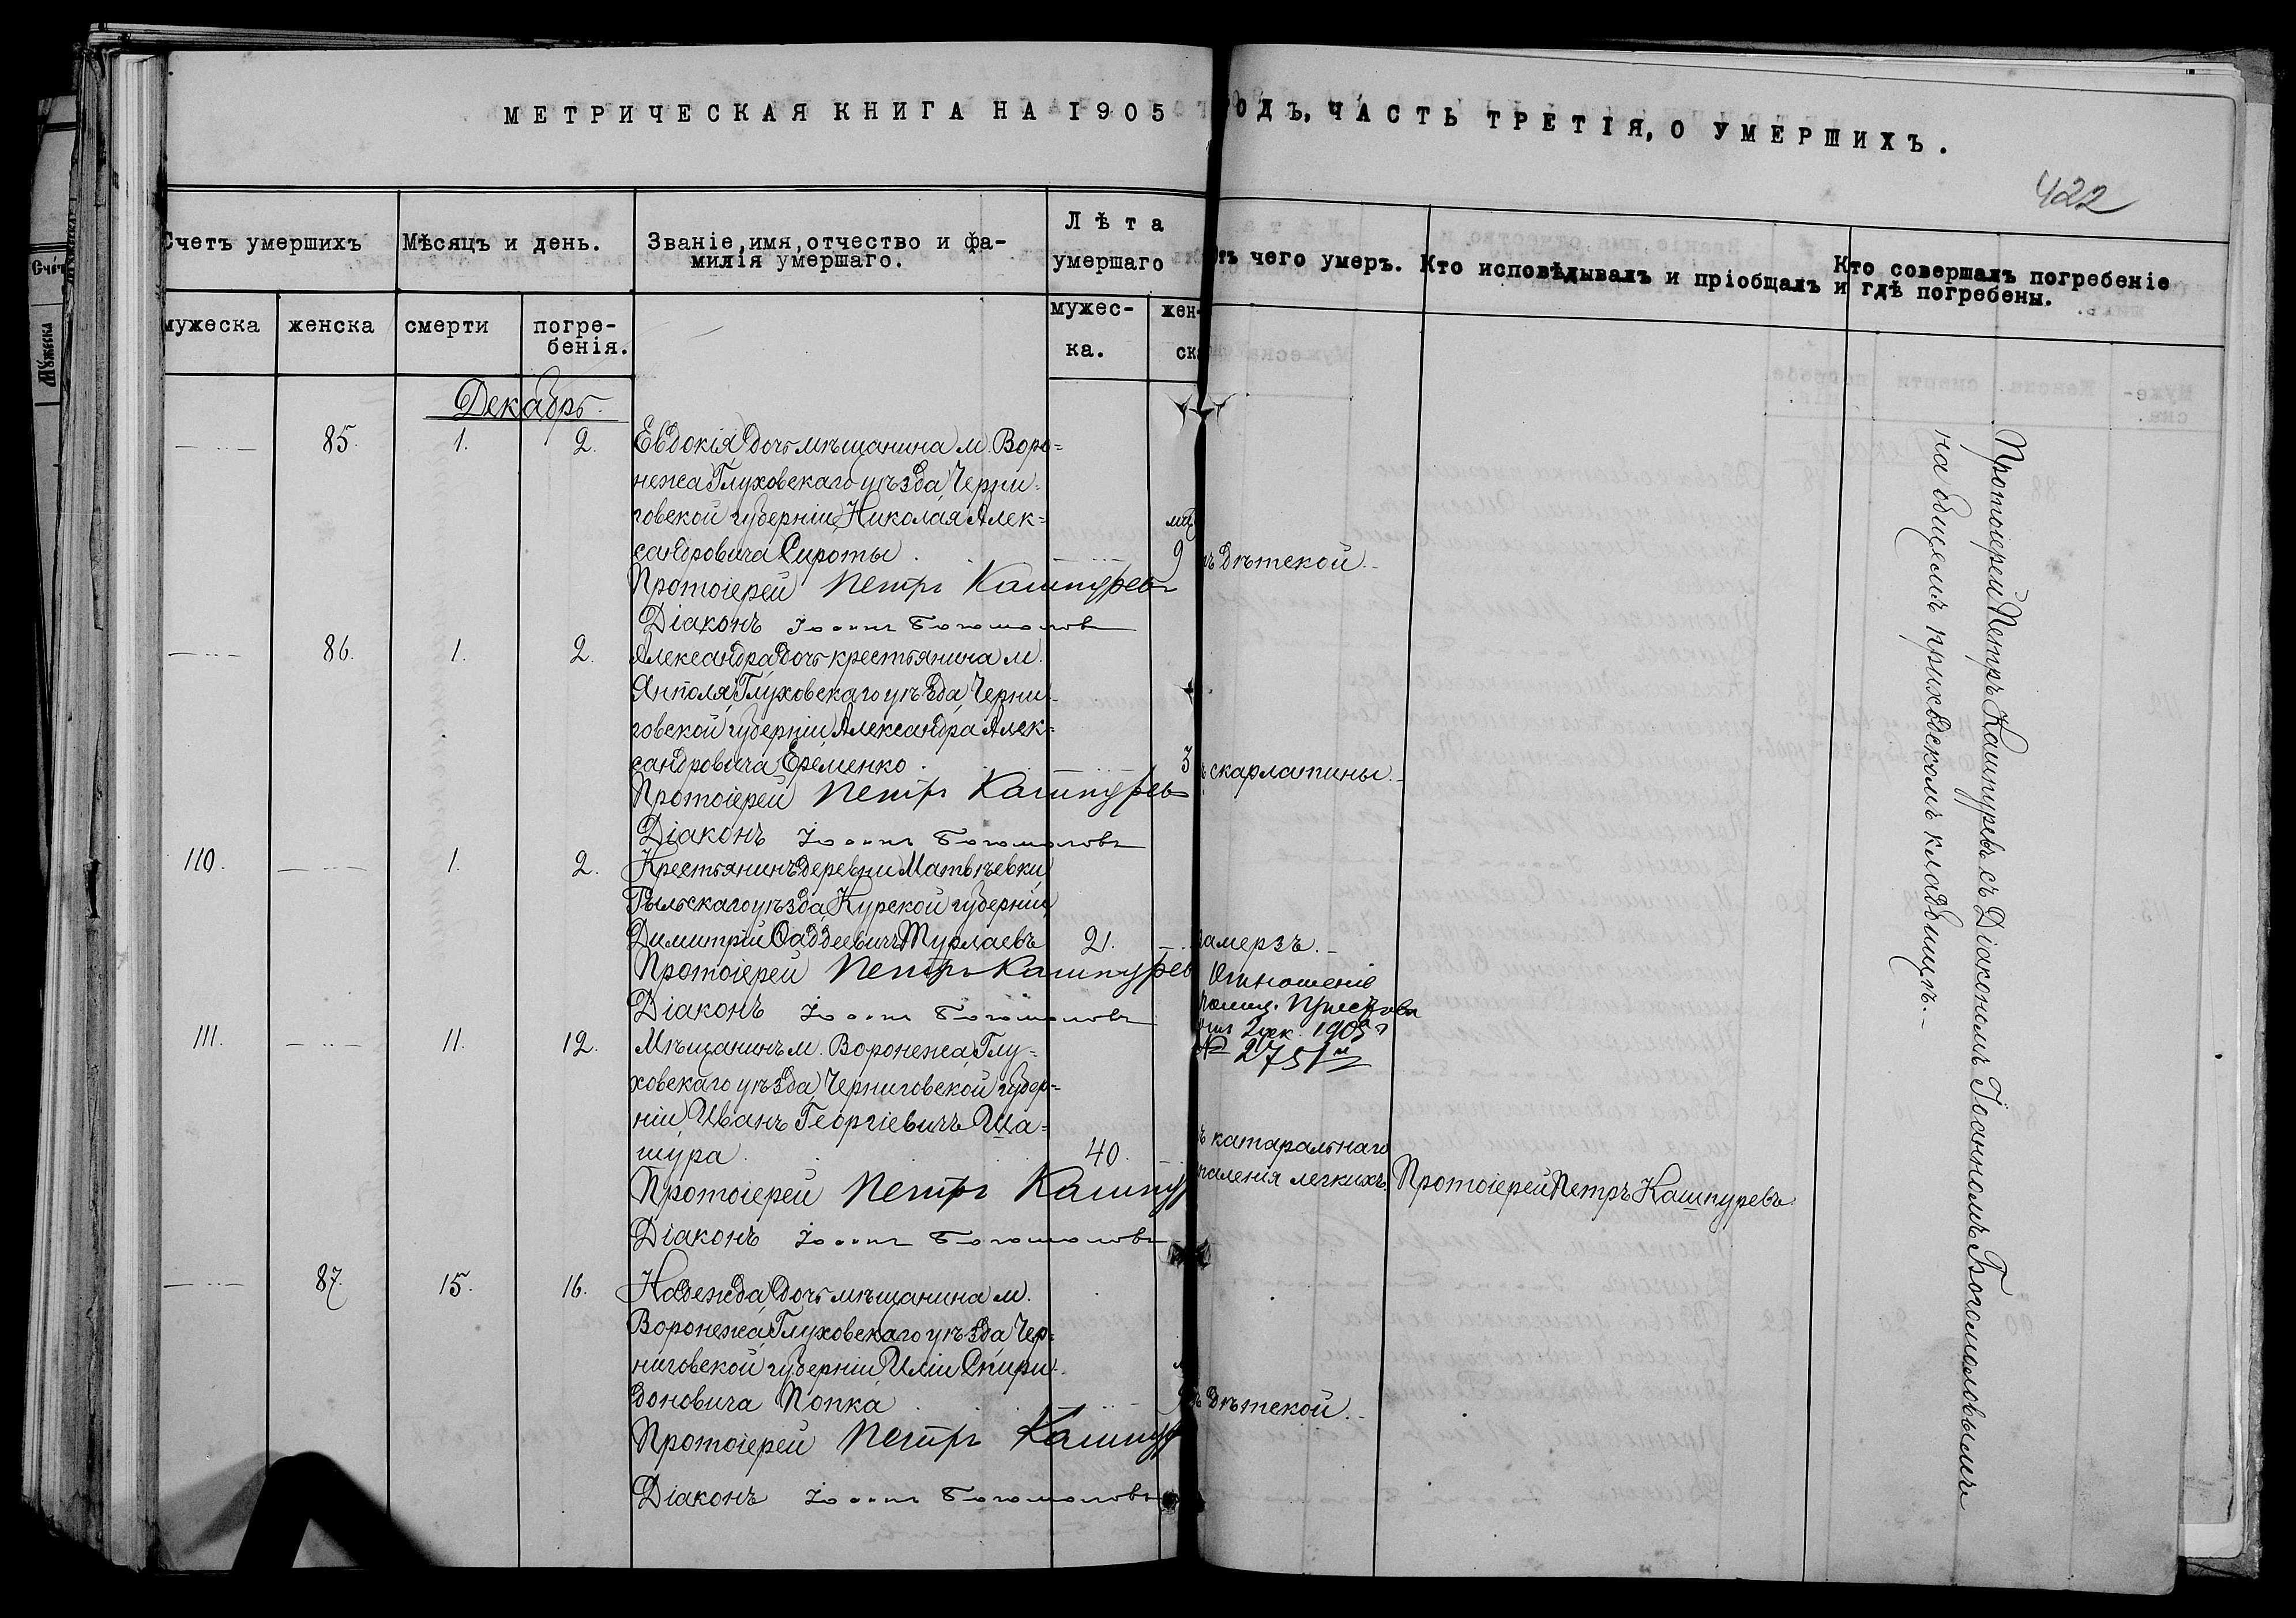 МЕТРИЧЕСКАЯ КНИГА НА 1905 ГОДЪ, ЧАСТЬ ТРЕТІЯ, О УМЕРШИХЪ.
422
Счетъ умершихъ
Мѣсяцъ и день.
Званіе, имя, отчество и фа-
милія умершаго.
Лѣта
умершаго
Отъ чего умеръ.
Кто исповѣдывалъ и пріобщалъ
Кто совершалъ погребеніе
и гдѣ погребены.
мужеска
женска
смерти
погре-
бенія.
мужес-
ка.
жен-
ска
Декабрь.
85. 1. 2. Евдокія дочь мѣщанина м. Воро=
нежа Глуховскаго уѣзда Черни=
говской губерніи Николая Алек=
сандровича Сироты 9 ъ дѣтской.
Протоіерей Петръ Кашпуревъ
Діаконъ Іоаннъ Богомоловъ
86. 1. 2. Александра дочь крестьянина м.
Янполя Глуховскаго уѣзда Черни=
говской губерніи Александра Алек=
сандровича Еременко 3 скарлатины.
Протоіерей Петръ Кашпуревъ
Діаконъ Іоаннъ Богомоловъ
110. 1. 2. Крестьянинъ деревни Матвѣевки
Рыльскаго уѣзда Курской губерніи
Димитрій Ѳаддеевичъ Турлаевъ 21. замерзъ.
Протоіерей Петръ Кашпуревъ
Діаконъ Іоаннъ Богомоловъ
Отношеніе
полиц. Пристава
отъ 2 дек. 1905 г
№ 2751
111. 11. 12. Мѣщанинъ м. Воронежа Глу=
ховскаго уѣзда Черниговской губер=
ніи Иванъ Георгіевичъ Ша=
шура 40. ъ катаральнаго
паленія легкихъ. Протоіерей Петръ Кашпуревъ
Протоіерей Петръ Кашпур
Діаконъ Іоаннъ Богомоловъ
87. 15. 16. Надежда дочь мѣщанина м.
Воронежа Глуховскаго уѣзда Чер=
ниговской губерніи Иліи Спири=
доновича Попка ъ дѣтской.
Протоіерей Петръ Кашпур
Діаконъ Іоаннъ Богомоловъ
Протоіерей Петръ Кашпуревъ съ Діакономъ Іоанномъ Богомоловымъ
на общемъ приходскомъ кладбищѣ.
Счетъ
Мужеска